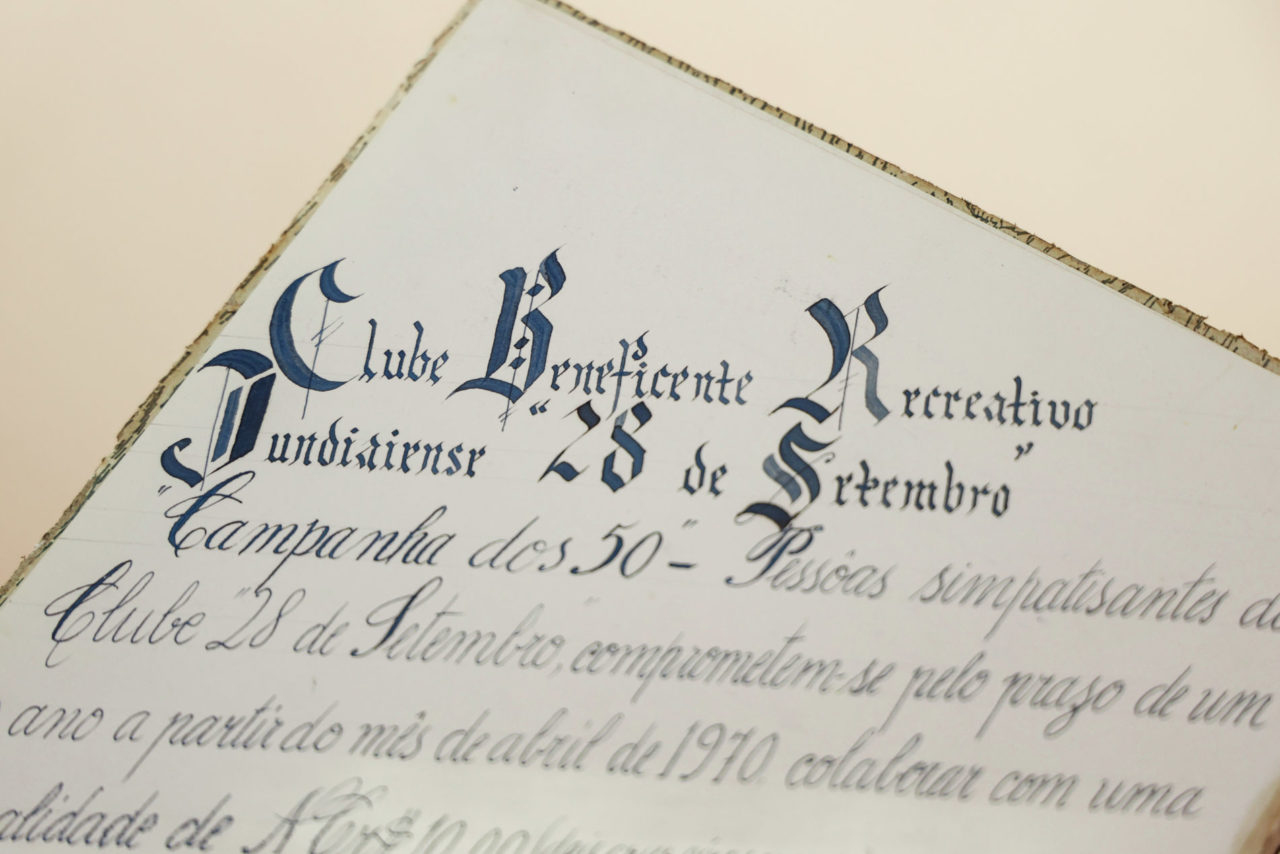 Clube Beneficente Recreativo
Jundiaiense "28 de Setembro"
"Campanha dos 50" - Pessôas simpatisantes do
Clube "28 de Setembro", comprometem-se pelo prazo de um
ano a partir do mês de abril de 1970 colaborar com uma
de NCr$ 10,00